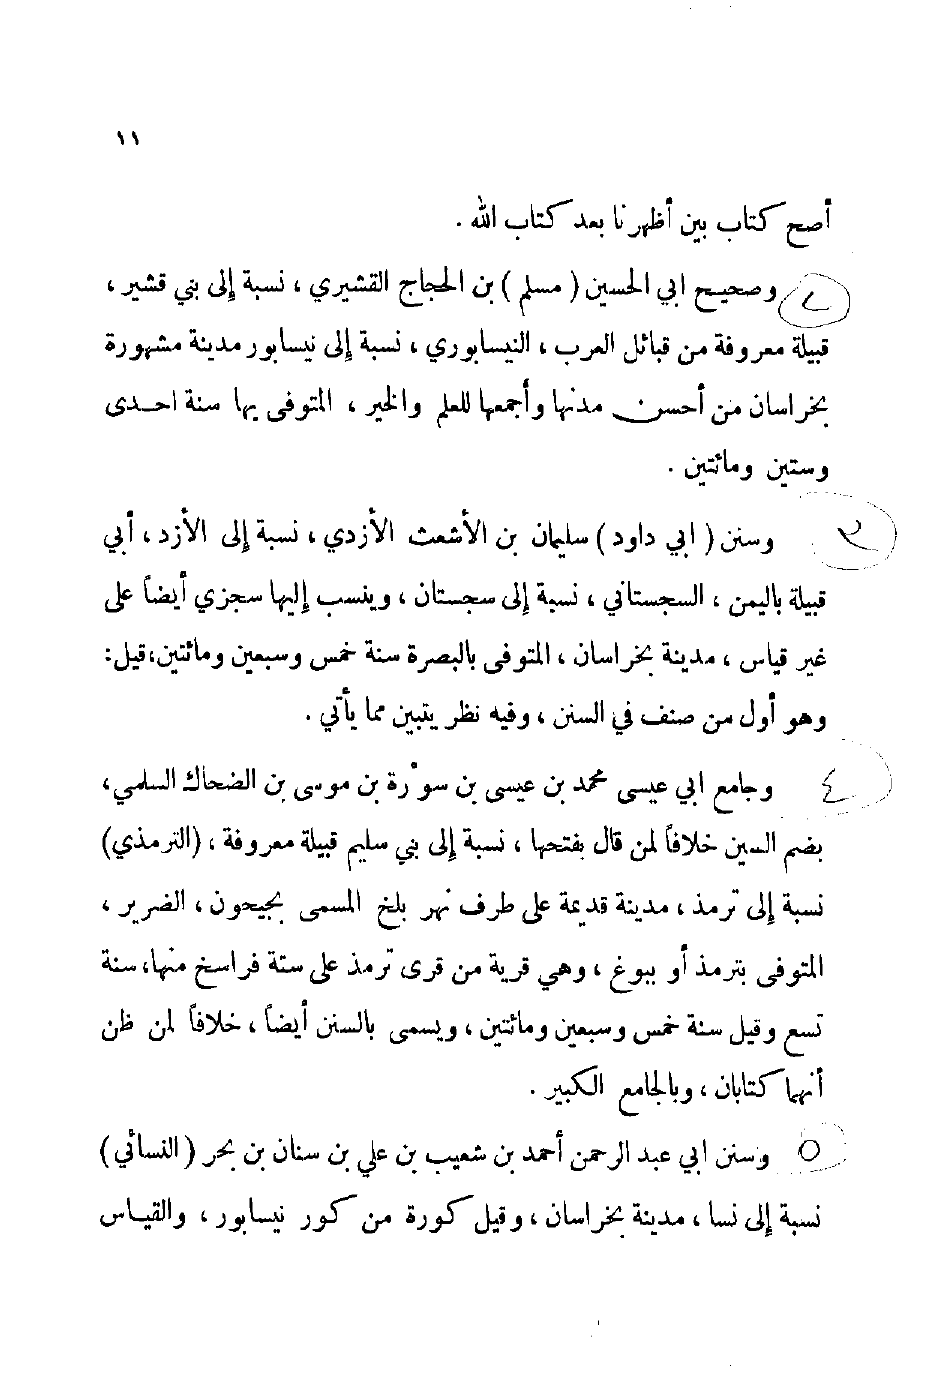 ١١
أصح كتاب بين أظهرنا بعد كتاب الله .
٢ وصحيح ابي الحسين ( مسلم ) بن الحجاج القشيري ، نسبة إلى بني قشير ،
قبيلة معروفة من قبائل العرب ، النيسابوري ، نسبة إلى نيسابور مدينة مشهورة
بخراسان من أحسن مدنها وأجمعها للعلم والخير ، المتوفى بها سنة احدى
وستين ومائتين .
٣ وسنن ( ابي داود ) سليمان بن الأشعث الأزدي ، نسبة إلى الأزد ، أبي
قبيلة باليمن ، السجستاني ، نسبة إلى سجستان ، وينسب إليها سجزي أيضاً على
غير قياس ، مدينة بخراسان ، المتوفى بالبصرة سنة خمس وسبعين ومائتين، قيل :
وهو أول من صنف في السنن ، وفيه نظر يتبين مما يأتي .
٤ وجامع ابي عيسى محمد بن عيسى بن سوْرة بن موسى بن الضحاك السلمي ،
بضم السين خلافاً لمن قال بفتحها ، نسبة إلى بني سليم قبيلة معروفة ، (الترمذي)
نسبة إلى ترمذ ، مدينة قديمة على طرف نهر بلخ المسمى بجيحون ، الضرير ،
المتوفى بترمذ أو ببوغ ، وهي قرية من قرى ترمذ على ستة فراسخ منها، سنة
تسع وقيل سنة خمس وسبعين ومائتين ، ويسمى بالسنن أيضاً ، خلافاً لمن ظن
أنهما كتابان ، وبالجامع الكبير .
٥ وسنن ابي عبد الرحمن أحمد بن شعيب بن علي بن سنان بن بحر ( النسائي )
نسبة إلى نسا ، مدينة بخراسان ، وقيل كورة من كور نيسابور ، والقياس